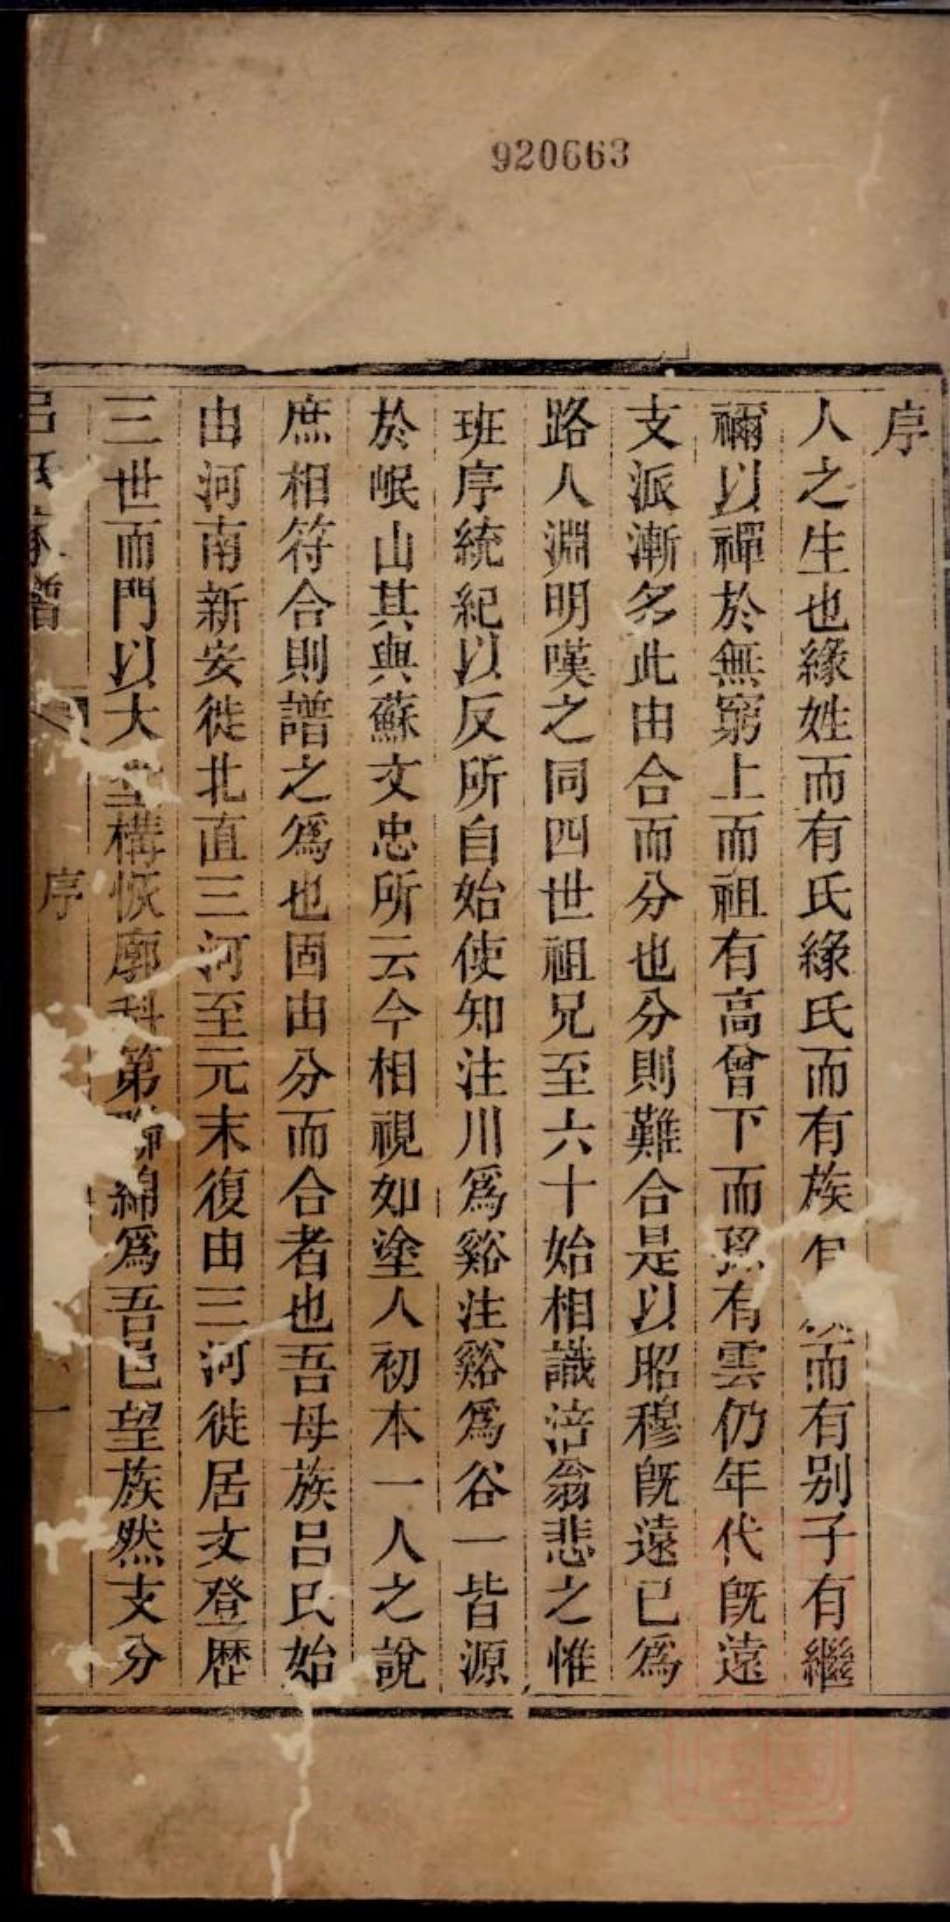 920663
序
人之生也緣姓而有氏緣氏而有族有而有别子有繼
禰以禪於無窮上而祖有高曾下而孫有雲仍年代旣遠
支派漸多此由合而分也分則難合是以昭穆旣遠已爲
路人淵明嘆之同四世祖兄至六十始相識涪翁悲之惟
班序統紀以反所自始使知注川爲谿注谿爲谷一皆源
於岷山其與蘇文忠所云今相視如塗人初本一人之說
庶相符合則譜之爲也固由分而合者也吾母族呂氏始
由河南新安徙北直三河至元末復由三河徙居文登歴
三世而門以大堂構恢廓科第綿爲吾邑望族然支分
呂氏家譜
序
一